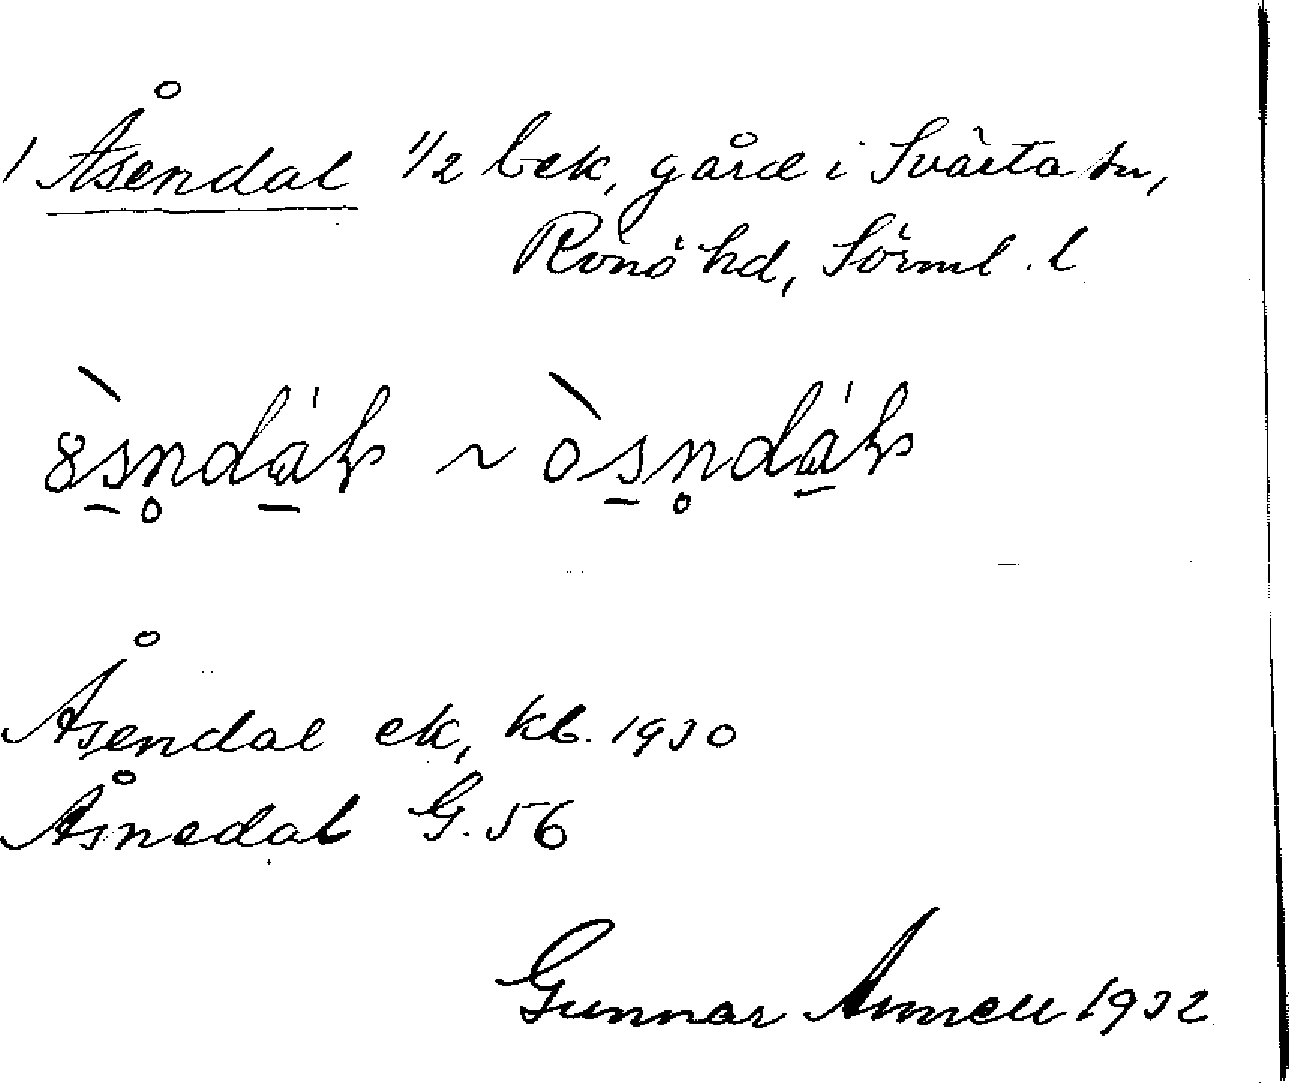 1 Åsendal 1/2 bek, gård i Svärta sn,
Rönö hd, Sörml. l
Åsendal ek, kb. 1930
Åsnedal G. 56
Gunnar Annell 1932